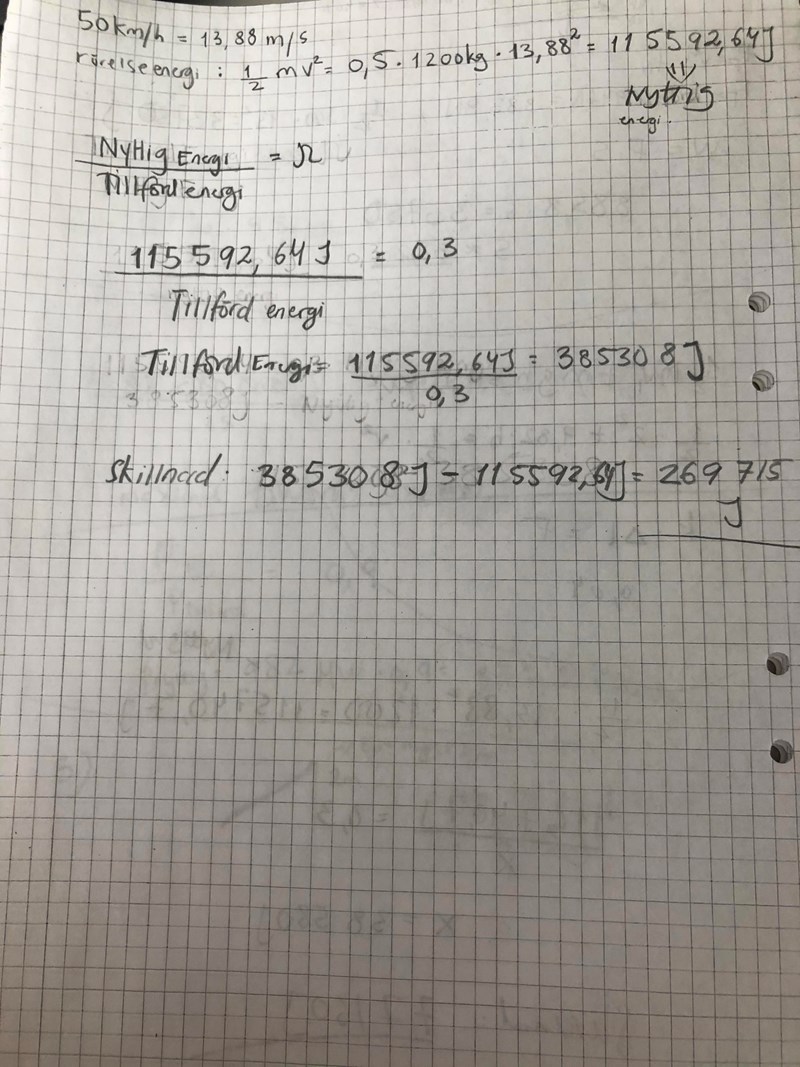 50km/h = 13,88 m/s
rörelseenergi : 1/2 mv² = 0,5 · 1200kg · 13,88² = 115592,64J
⇓
Nyttig
energi.
Nyttig Energi / Tillförd energi = Ω
115592,64J / Tillförd energi = 0,3
Tillförd Energi = 115592,64J / 0,3 = 385308J
Skillnad: 385308J - 115592,64J = 269715
J